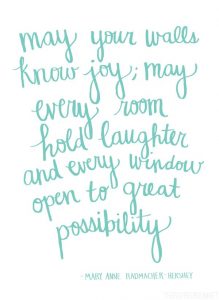 may your walls
know joy; may
every room
hold laughter
and every window
open to great
possibility
- MARY ANNE RADMACHER-HERSHEY